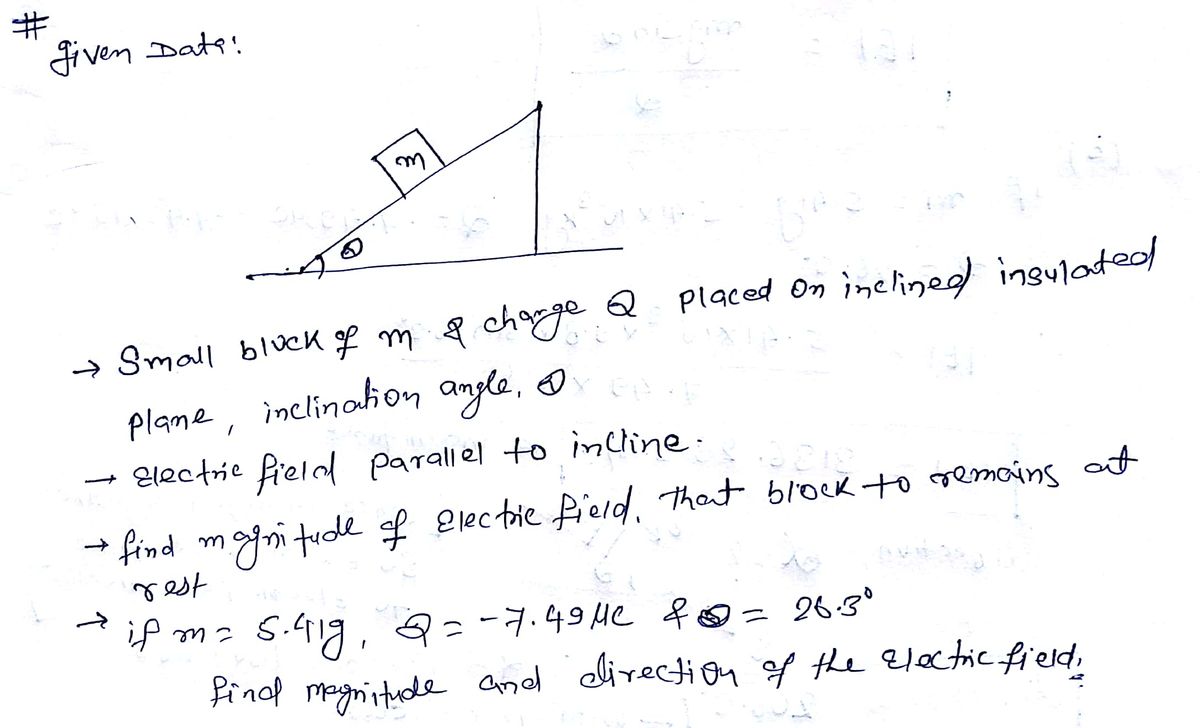 #
Given Data:
m
θ
→ Small block of m & charge Q placed on inclined insulated
plane, inclination angle, θ
→ Electric field parallel to incline.
→ find magnitude of Electric field. that block to remains at
rest
→ if m = 5.41g, Q = -7.49 μC & θ = 26.3°
find magnitude and direction of the Electric field.